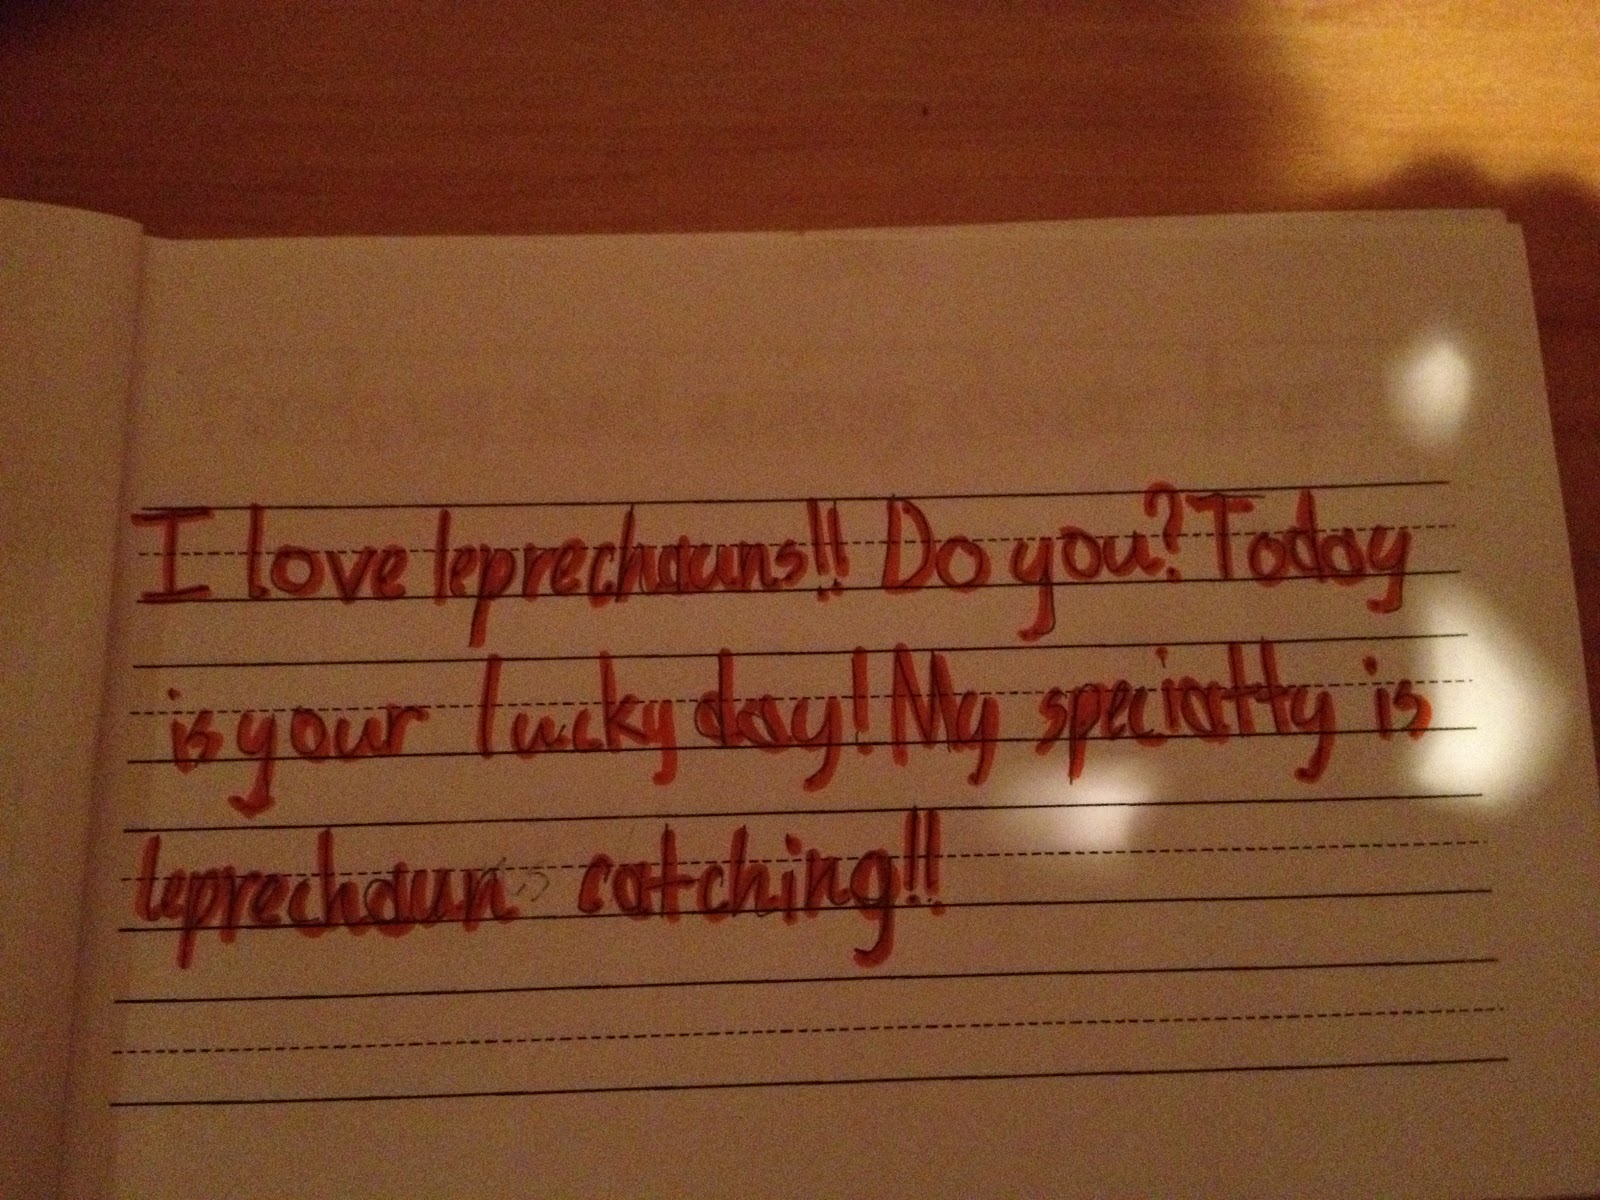 I love leprechauns!! Do you? Today
is your lucky day! My specialtty is
leprechaun catching!!